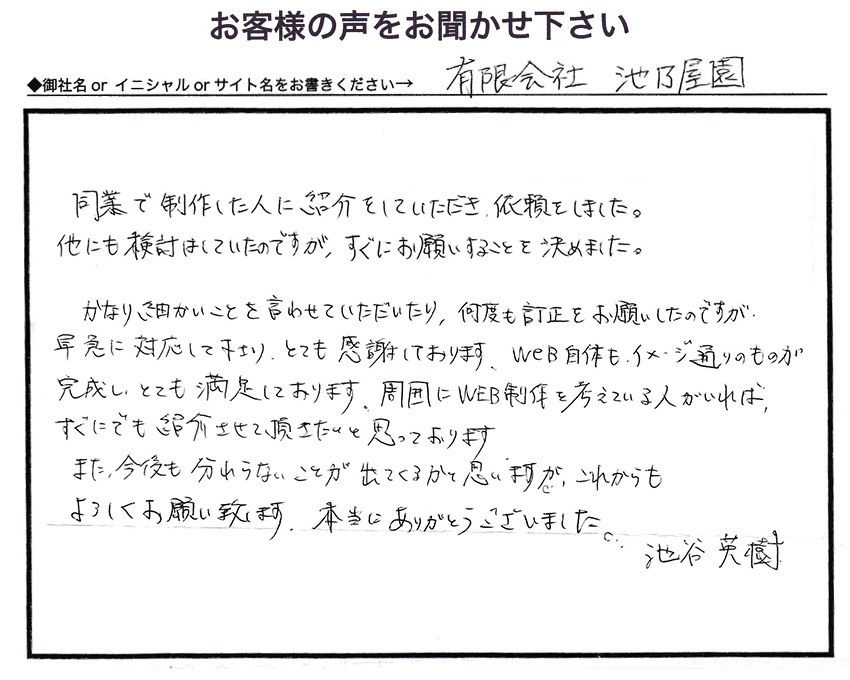 お客様の声をお聞かせ下さい
◆御社名 or イニシャル or サイト名をお書きください→ 有限会社 池乃屋園
同業で制作した人に紹介をしていただき、依頼をしました。
他にも検討はしていたのですが、すぐにお願いすることを決めました。
かなり細かいことを言わせていただいたり、何度も訂正をお願いしたのですが
早急に対応して下さり、とても感謝しております。WEB自体も、イメージ通りのものが
完成し、とても満足しております。周囲にWEB制作を考えている人がいれば、
すぐにでも紹介させて頂きたいと思っております
また、今後も分からないことが出てくるかと思いますが、これからも
よろしくお願い致します。本当にありがとうございました。
池谷 英樹